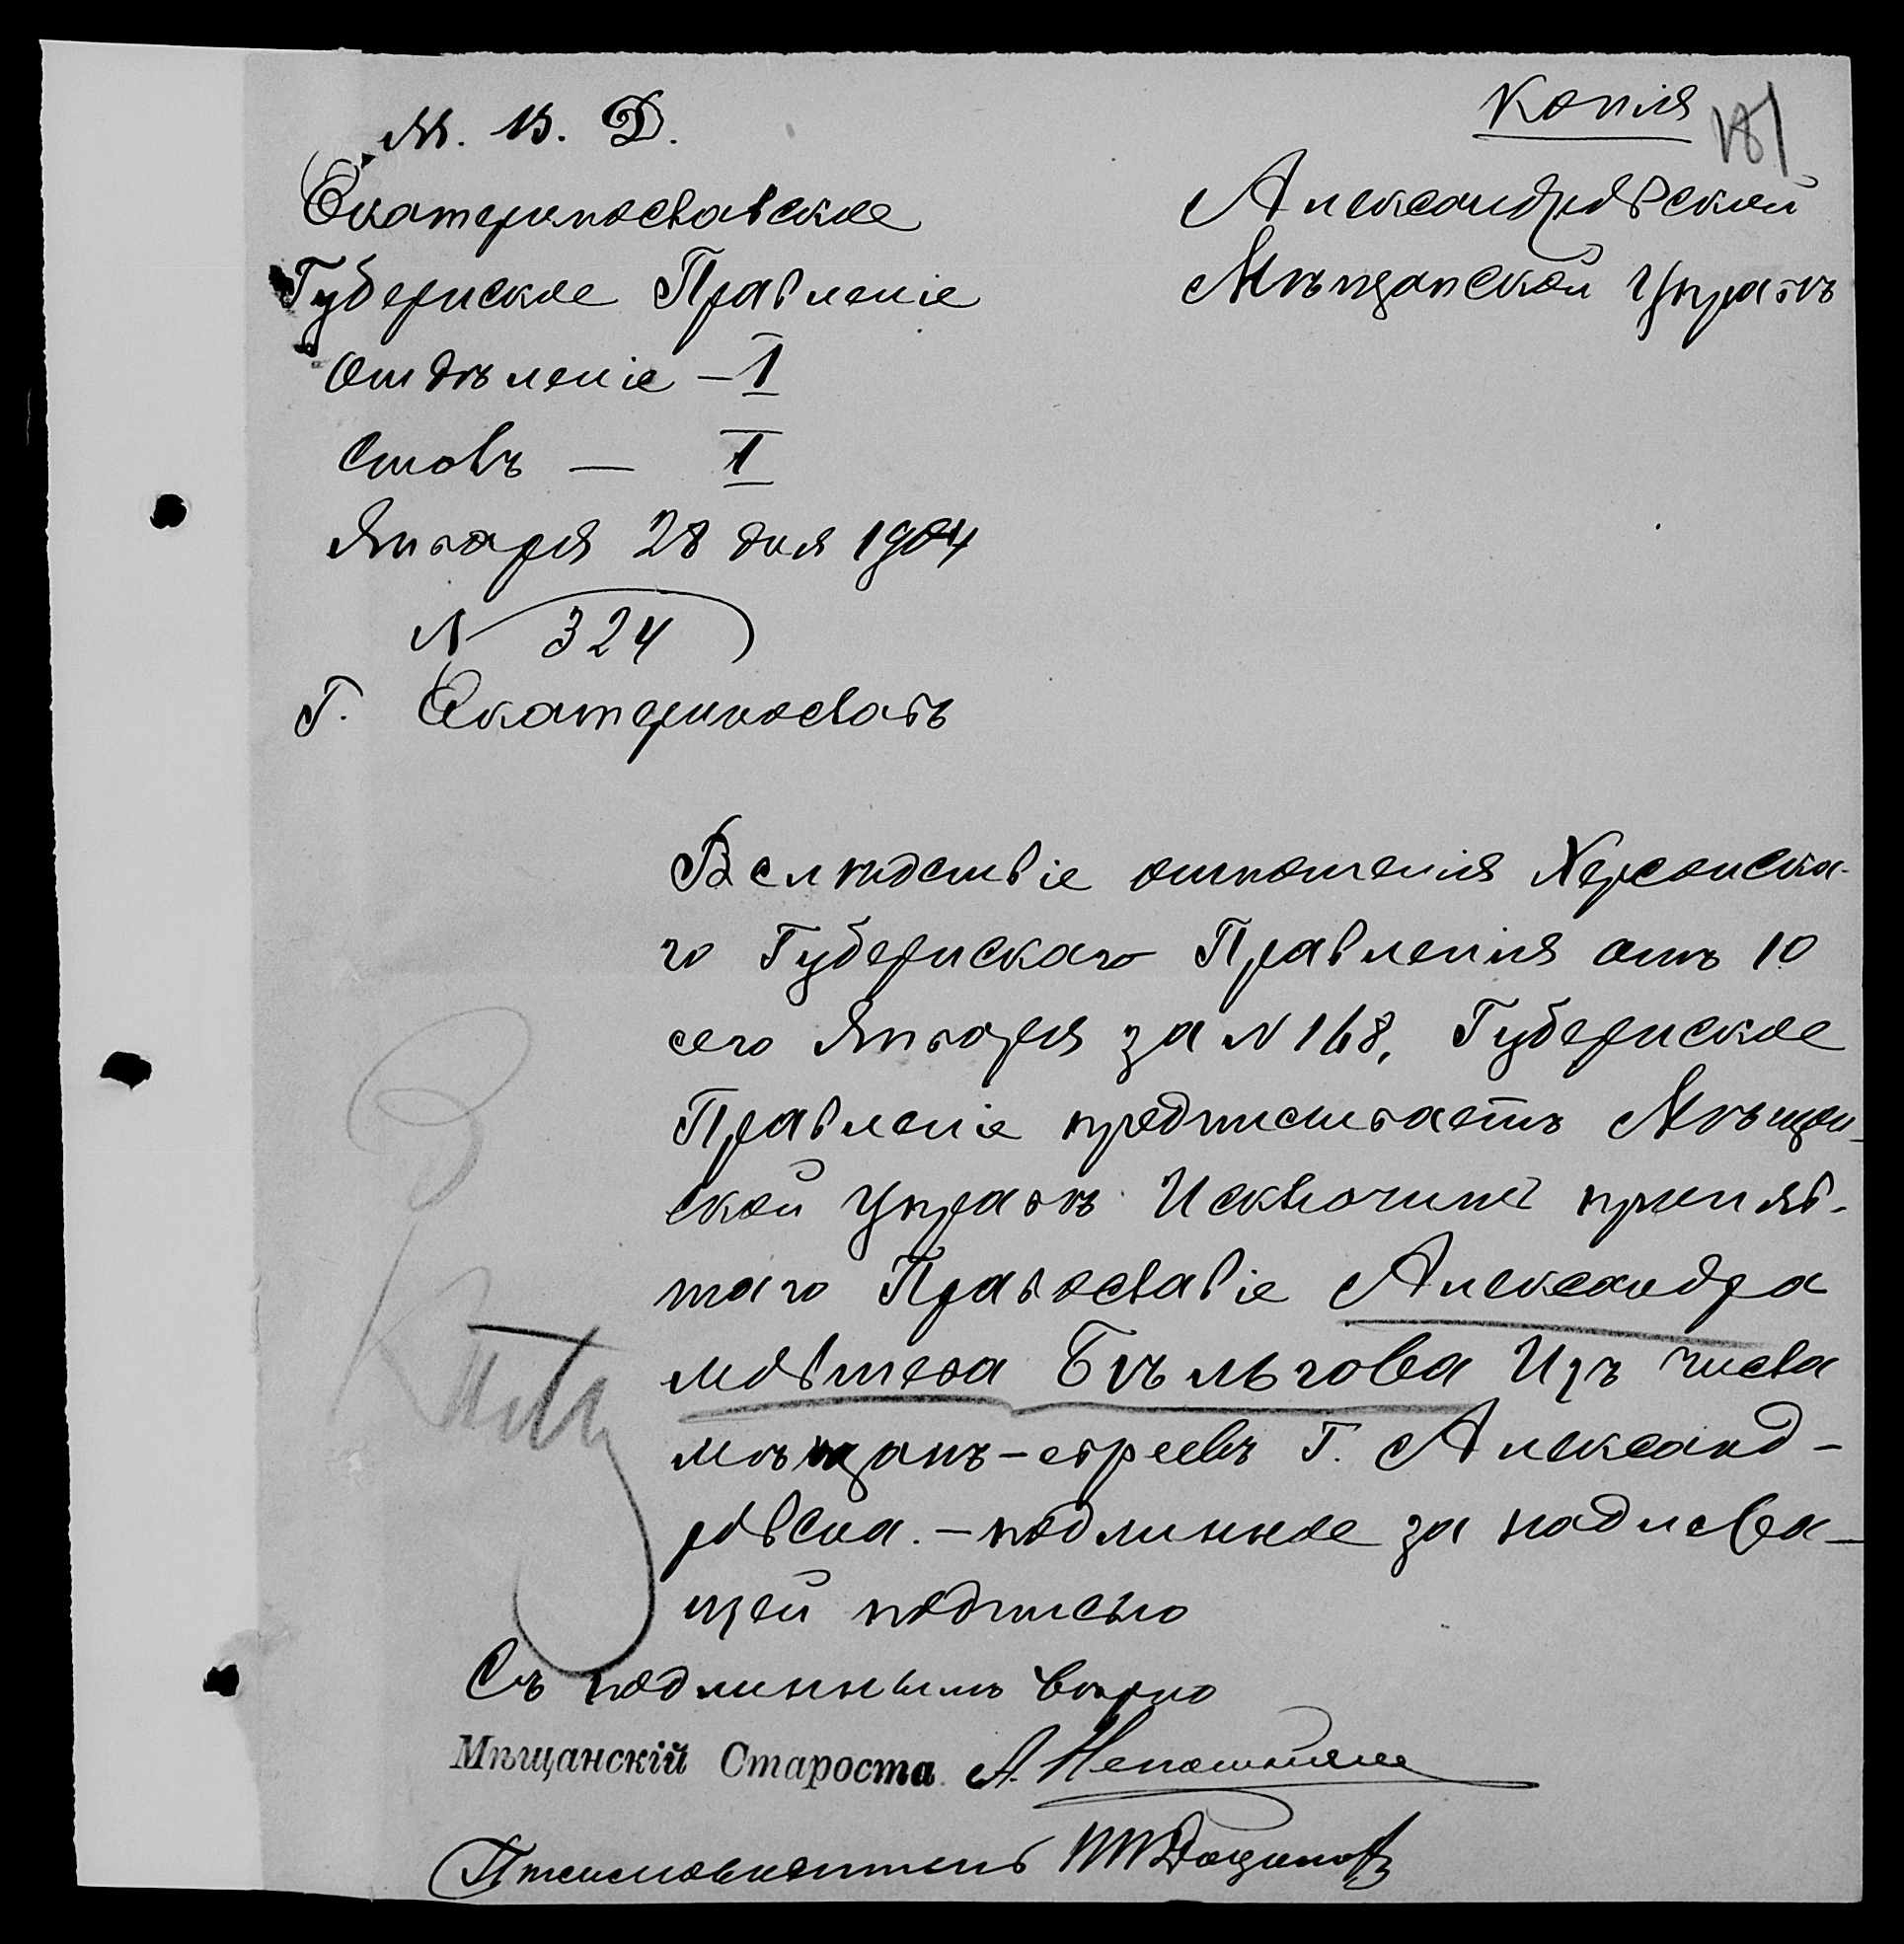 Копія
181
М. В. Д.
Екатеринославское
Губернское Правленіе
Отдѣленіе – I
Столъ — I
Января 28 дня 1904
N 324
Г. Екатеринославъ
Александровской
Мѣщанской Управѣ
Вслѣдствіе отношенія Херсонска-
го Губернскаго Правленія отъ 10
сего Января за N 168, Губернское
Правленіе предписываетъ Мѣщан-
ской Управѣ Исключить приняв-
шаго Православіе Александра
Бѣльгова Изъ числа
мѣщанъ-евреевъ Г. Александ-
ровска. – подлинное за надлежа-
щей подписью
Съ подлиннымъ вѣрно
Мѣщанскій Староста А.
Письмоводитель